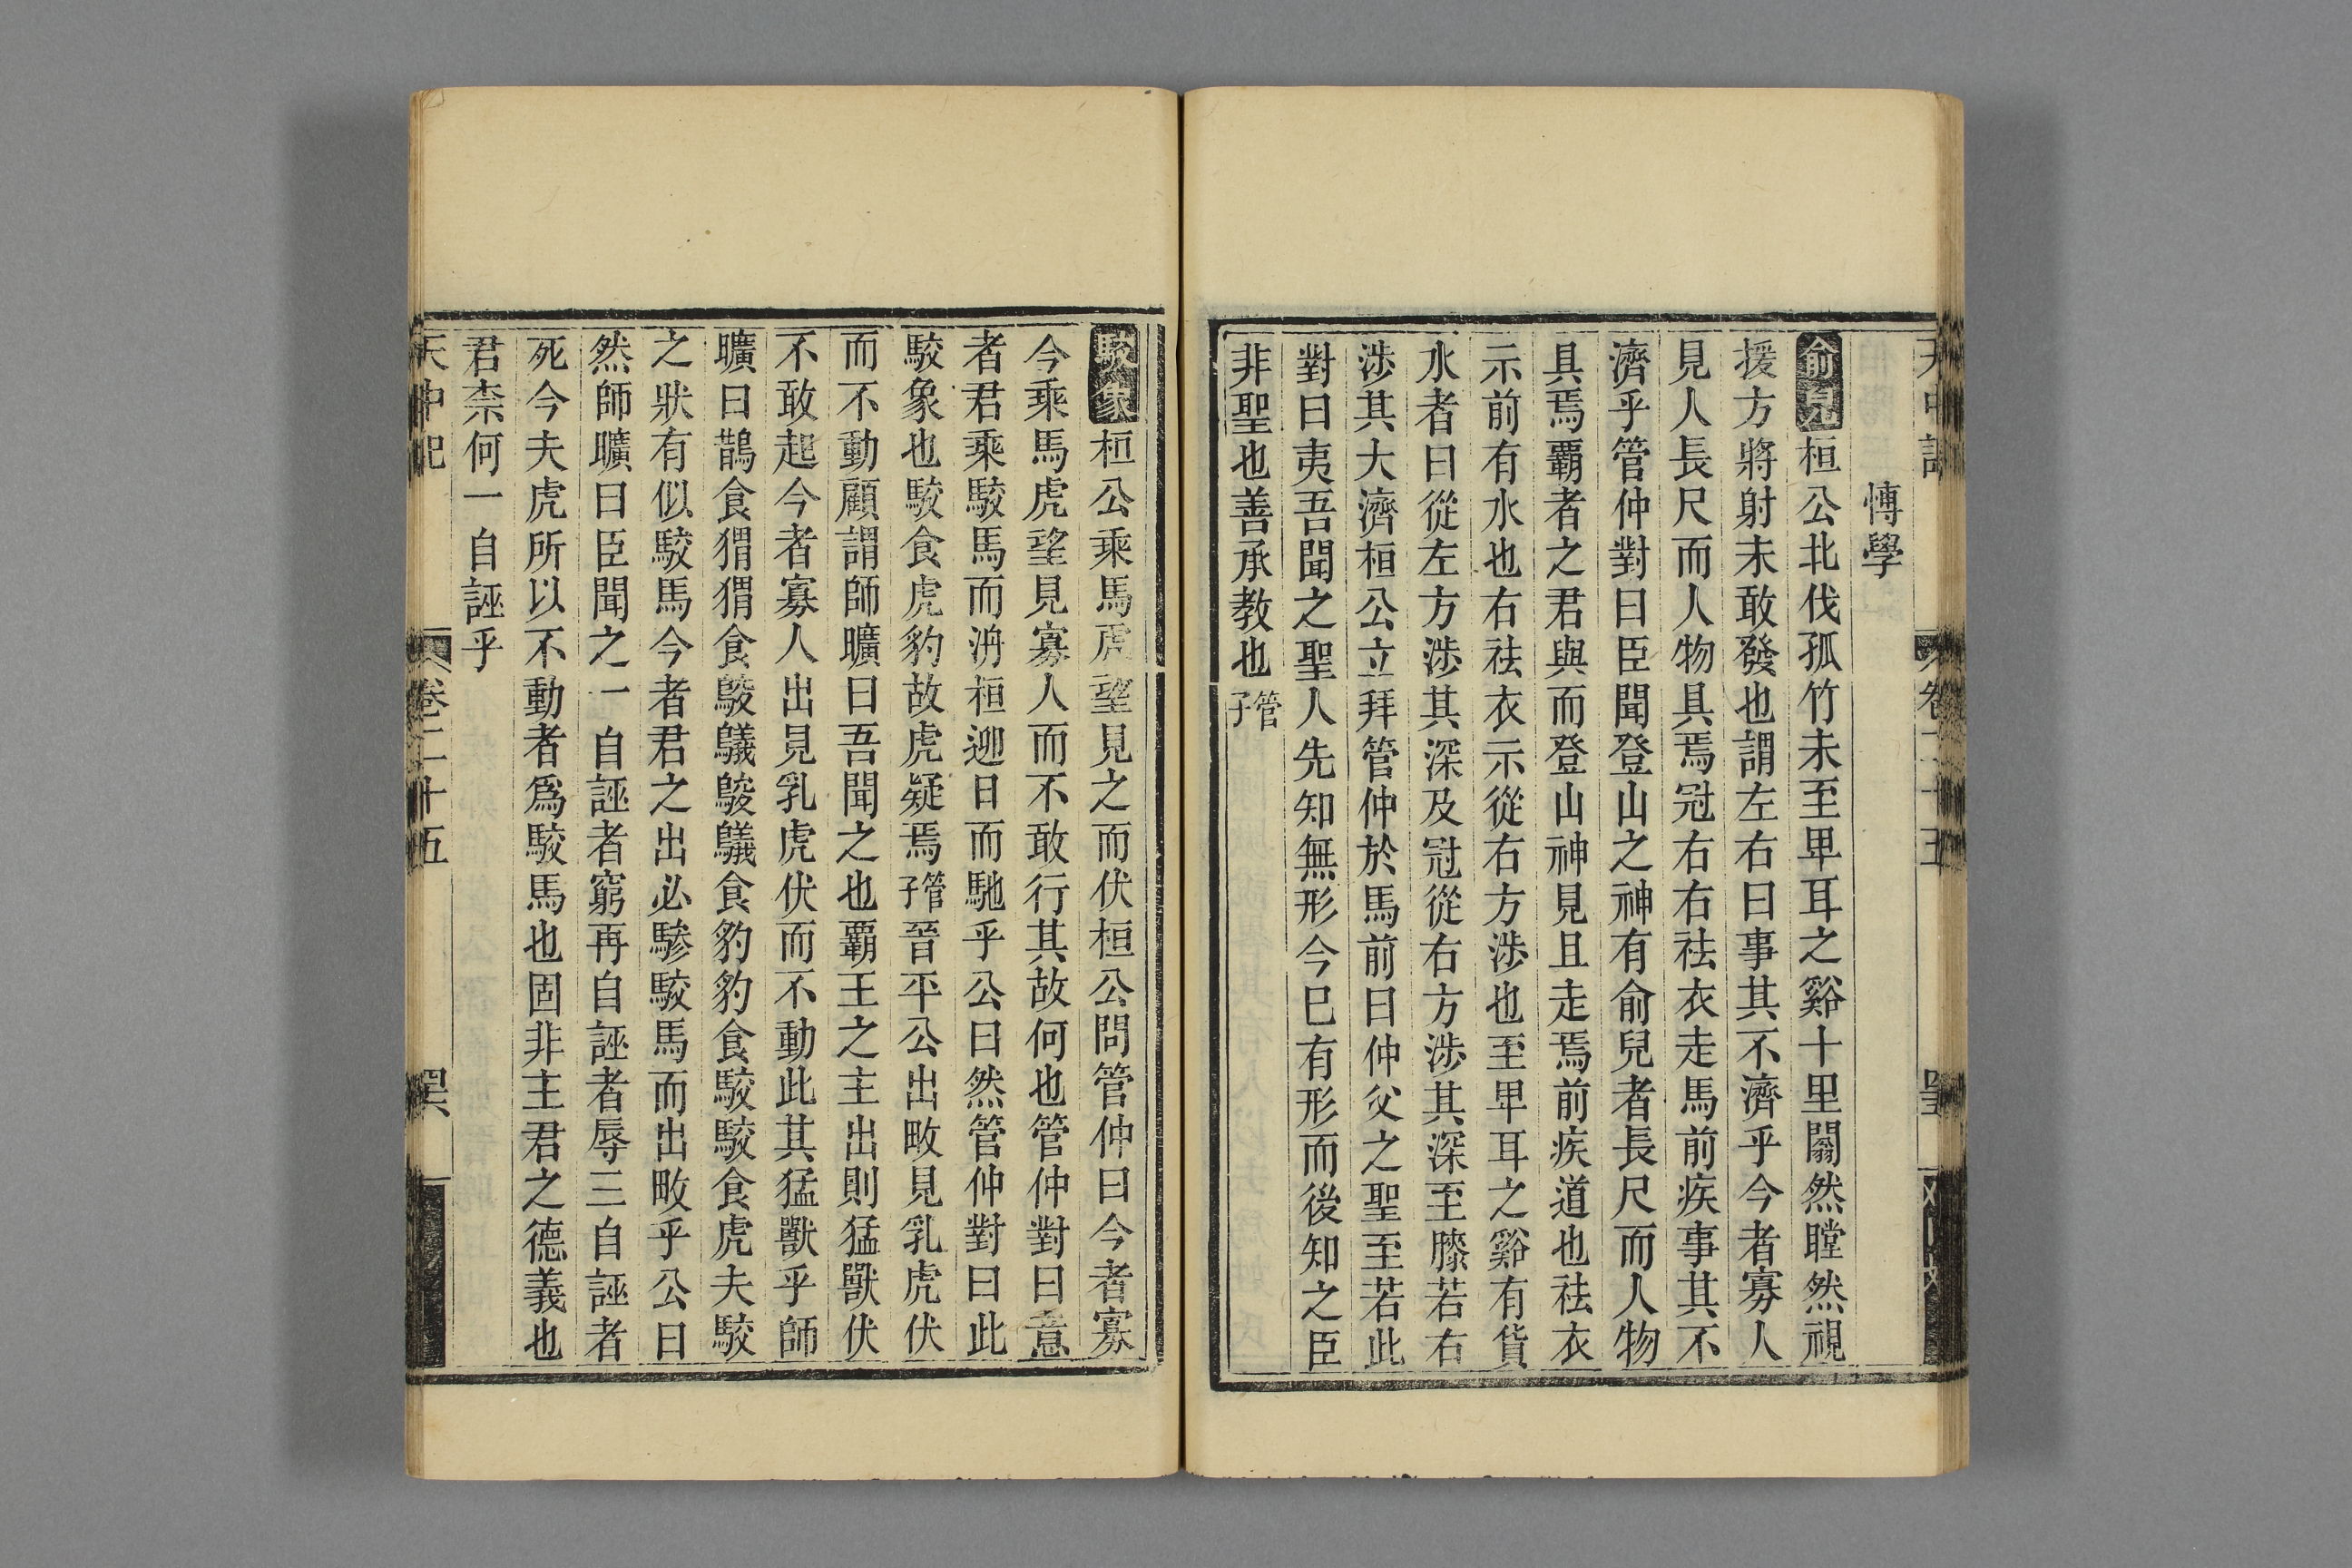 博學
俞兒桓公北伐孤竹未至卑耳之谿十里闟然瞠然視
援方將射未敢發也謂左右曰事其不濟乎今者寡人
見人長尺而人物具焉冠右右袪衣走馬前疾事其不
濟乎管仲對曰臣聞登山之神有俞兒者長尺而人物
具焉霸者之君與而登山神見且走焉前疾道也袪衣
示前有水也右袪衣示從右方涉也至卑耳之谿有貨
水者曰從左方涉其深及冠從右方涉其深至膝若右
涉其大濟桓公立拜管仲於馬前曰仲父之聖至若此
對曰夷吾聞之聖人先知無形今已有形而後知之臣
非聖也善承教也管子
駮象桓公乘馬虎望見之而伏桓公問管仲曰今者寡
今乘馬虎望見寡人而不敢行其故何也管仲對曰意
者君乘駮馬而洀桓迎日而馳乎公曰然管仲對曰此
駮象也駮食虎豹故虎疑焉管子晉平公出畋見乳虎伏
而不動顧謂師曠曰吾聞之也霸王之主出則猛獸伏
不敢起今者寡人出見乳虎伏而不動此其猛獸乎師
曠曰鵲食猬猬食鵕鸃鵕鸃食豹豹食駮駮食虎夫駮
之狀有似駮馬今者君之出必驂駮馬而出畋乎公曰
然師曠曰臣聞之一自誣者窮再自誣者辱三自誣者
死今夫虎所以不動者爲駮馬也固非主君之德義也
君柰何一自誣乎
天中記
卷二十五